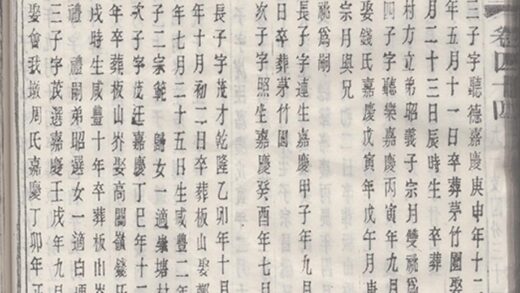 卷四十四
三子字聽德嘉慶庚申年十二
年五月十一日卒葬茅竹園娶
月二十三日辰時生卒葬
村方立弟昭義子宗月雙祧
四子字聽樂嘉慶丙寅年九月
娶錢氏嘉慶戊寅年戊午月庚
宗月與兄
祧爲嗣
長子字連生嘉慶甲子年九月
日卒葬茅竹園
次子字照生嘉慶癸酉年七月
長子字茂才乾隆乙卯年十月
年十月初二日卒葬板山娶鄭
年七月二十五日生咸豐二年
子二宗範子歸女一適塘村
次子字茂廷嘉慶丁巳年十二
年卒葬板山岕娶高闢嶺錢氏
戌時生咸豐十年卒葬板山岕
禮嗣弟昭選女一適白
三子字茂選嘉慶壬戌年九月
娶會我墩周氏嘉慶丁卯年正